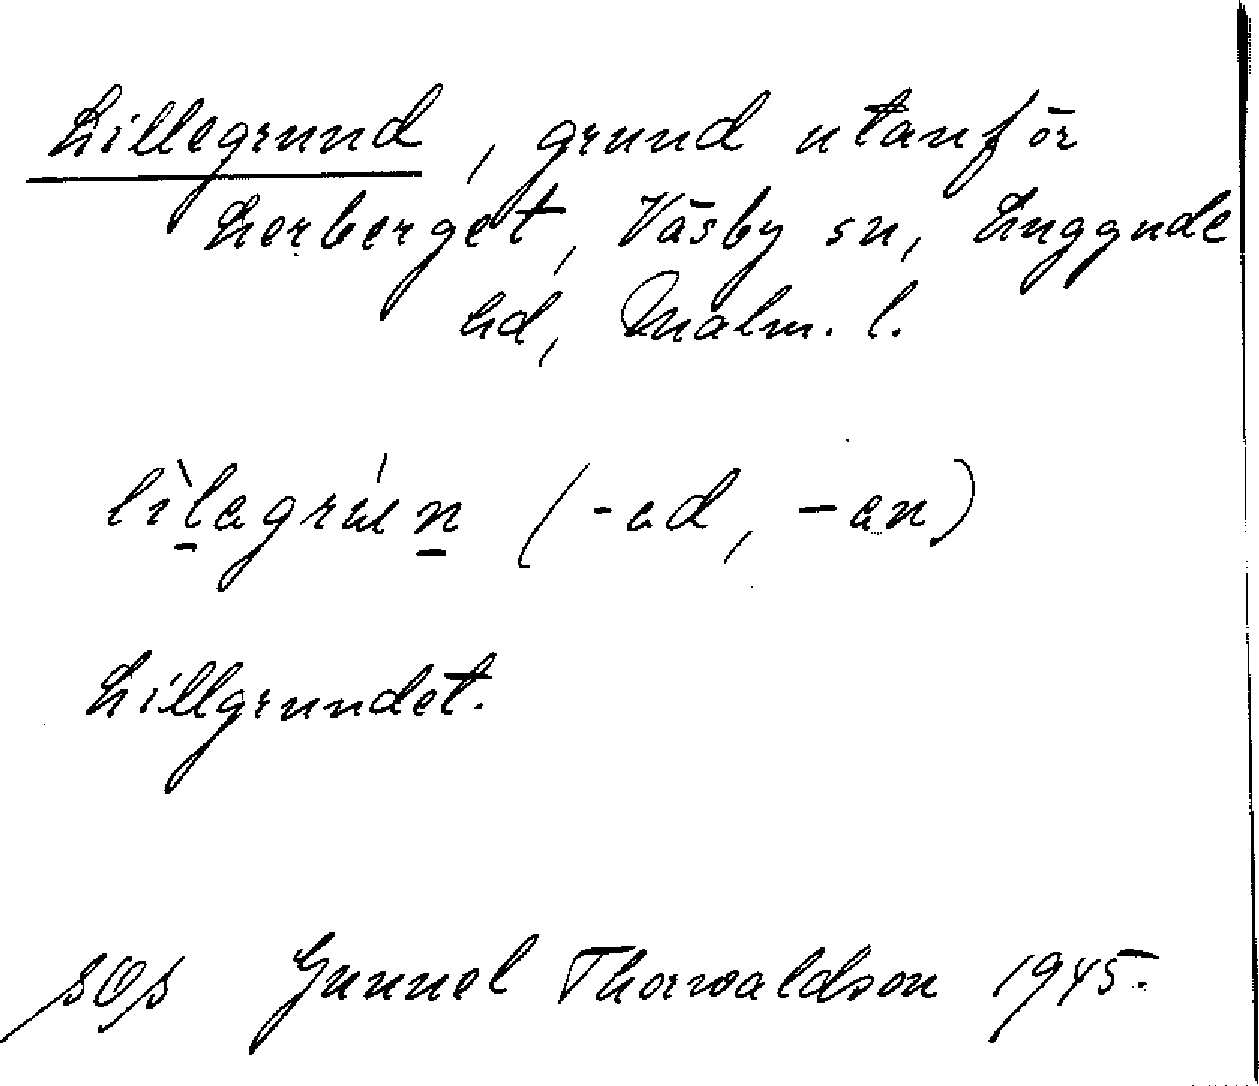 Lillegrund, grund utanför
Lerberget, Väsby sn, Luggude
hd, Malm. l.
(-ad, -an)
Lillgrundet.
Gunnel Thorwaldson 1945.